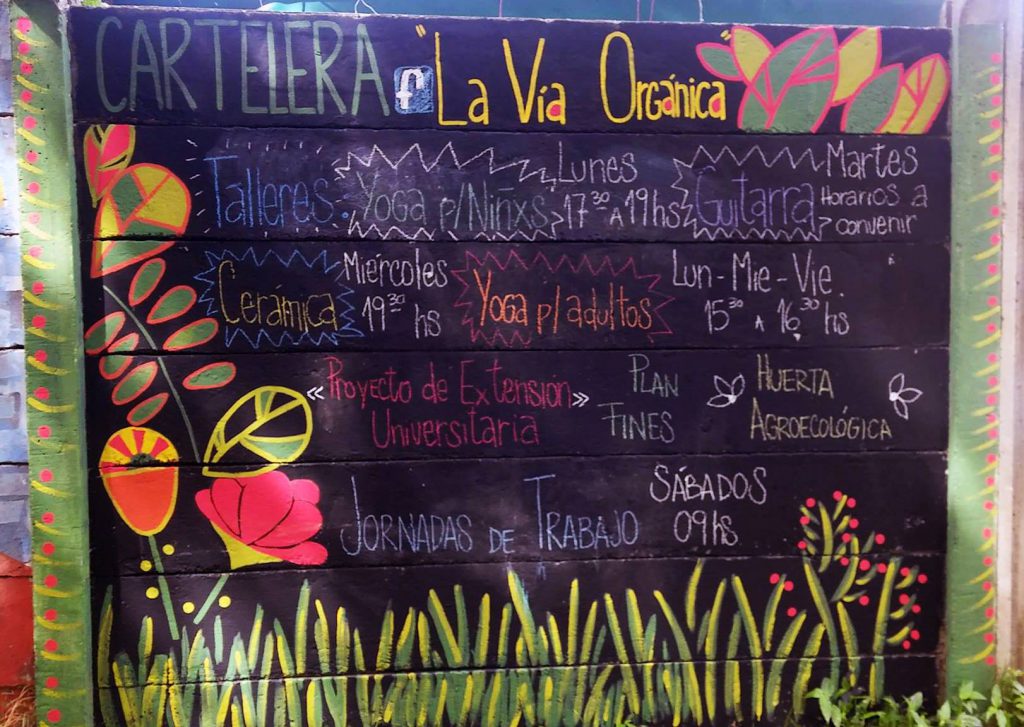 CARTELERA f "La Vía Orgánica"
Talleres. Yoga p/Niñxs Lunes 17³⁰ A 19hs Guitarra Martes Horarios a convenir
Cerámica Miércoles 19³⁰ hs Yoga p/adultos Lun-Mie-Vie. 15³⁰ A 16³⁰ hs
«Proyecto de Extensión Universitaria» PLAN FINES HUERTA AGROECOLÓGICA
JORNADAS DE TRABAJO SÁBADOS 09hs